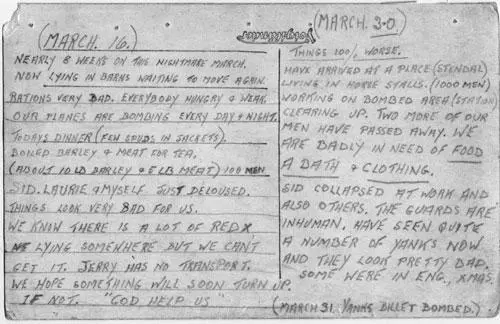 Voigtländer
(MARCH. 16.)
NEARLY 8 WEEKS ON THIS NIGHTMARE MARCH.
NOW LYING IN BARNS WAITING TO MOVE AGAIN.
RATIONS VERY BAD. EVERYBODY HUNGRY & WEAK.
OUR PLANES ARE BOMBING EVERY DAY & NIGHT.
TODAYS DINNER (FEW SPUDS IN JACKETS).
BOILED BARLEY & MEAT FOR TEA.
(ABOUT 10 LB BARLEY & 5 LB MEAT) 100 MEN
SID. LAURIE & MYSELF JUST DELOUSED.
THINGS LOOK VERY BAD FOR US.
WE KNOW THERE IS A LOT OF RED X
LYING SOMEWHERE BUT WE CAN'T
GET IT. JERRY HAS NO TRANSPORT.
WE HOPE SOMETHING WILL SOON TURN UP.
IF NOT. "GOD HELP US"
(MARCH 30.)
THINGS 100% WORSE.
HAVE ARRIVED AT A PLACE (STENDAL)
LIVING IN HORSE STALLS. (1000 MEN)
WORKING ON BOMBED AREA (STATION
CLEARING UP. TWO MORE OF OUR
MEN HAVE PASSED AWAY. WE
ARE BADLY IN NEED OF FOOD
A BATH & CLOTHING.
SID COLLAPSED AT WORK AND
ALSO OTHERS. THE GUARDS ARE
INHUMAN. HAVE SEEN QUITE
A NUMBER OF YANKS NOW
AND THEY LOOK PRETTY BAD.
SOME WERE IN ENG., XMAS.
(MARCH 31. YANKS BILLET BOMBED.)